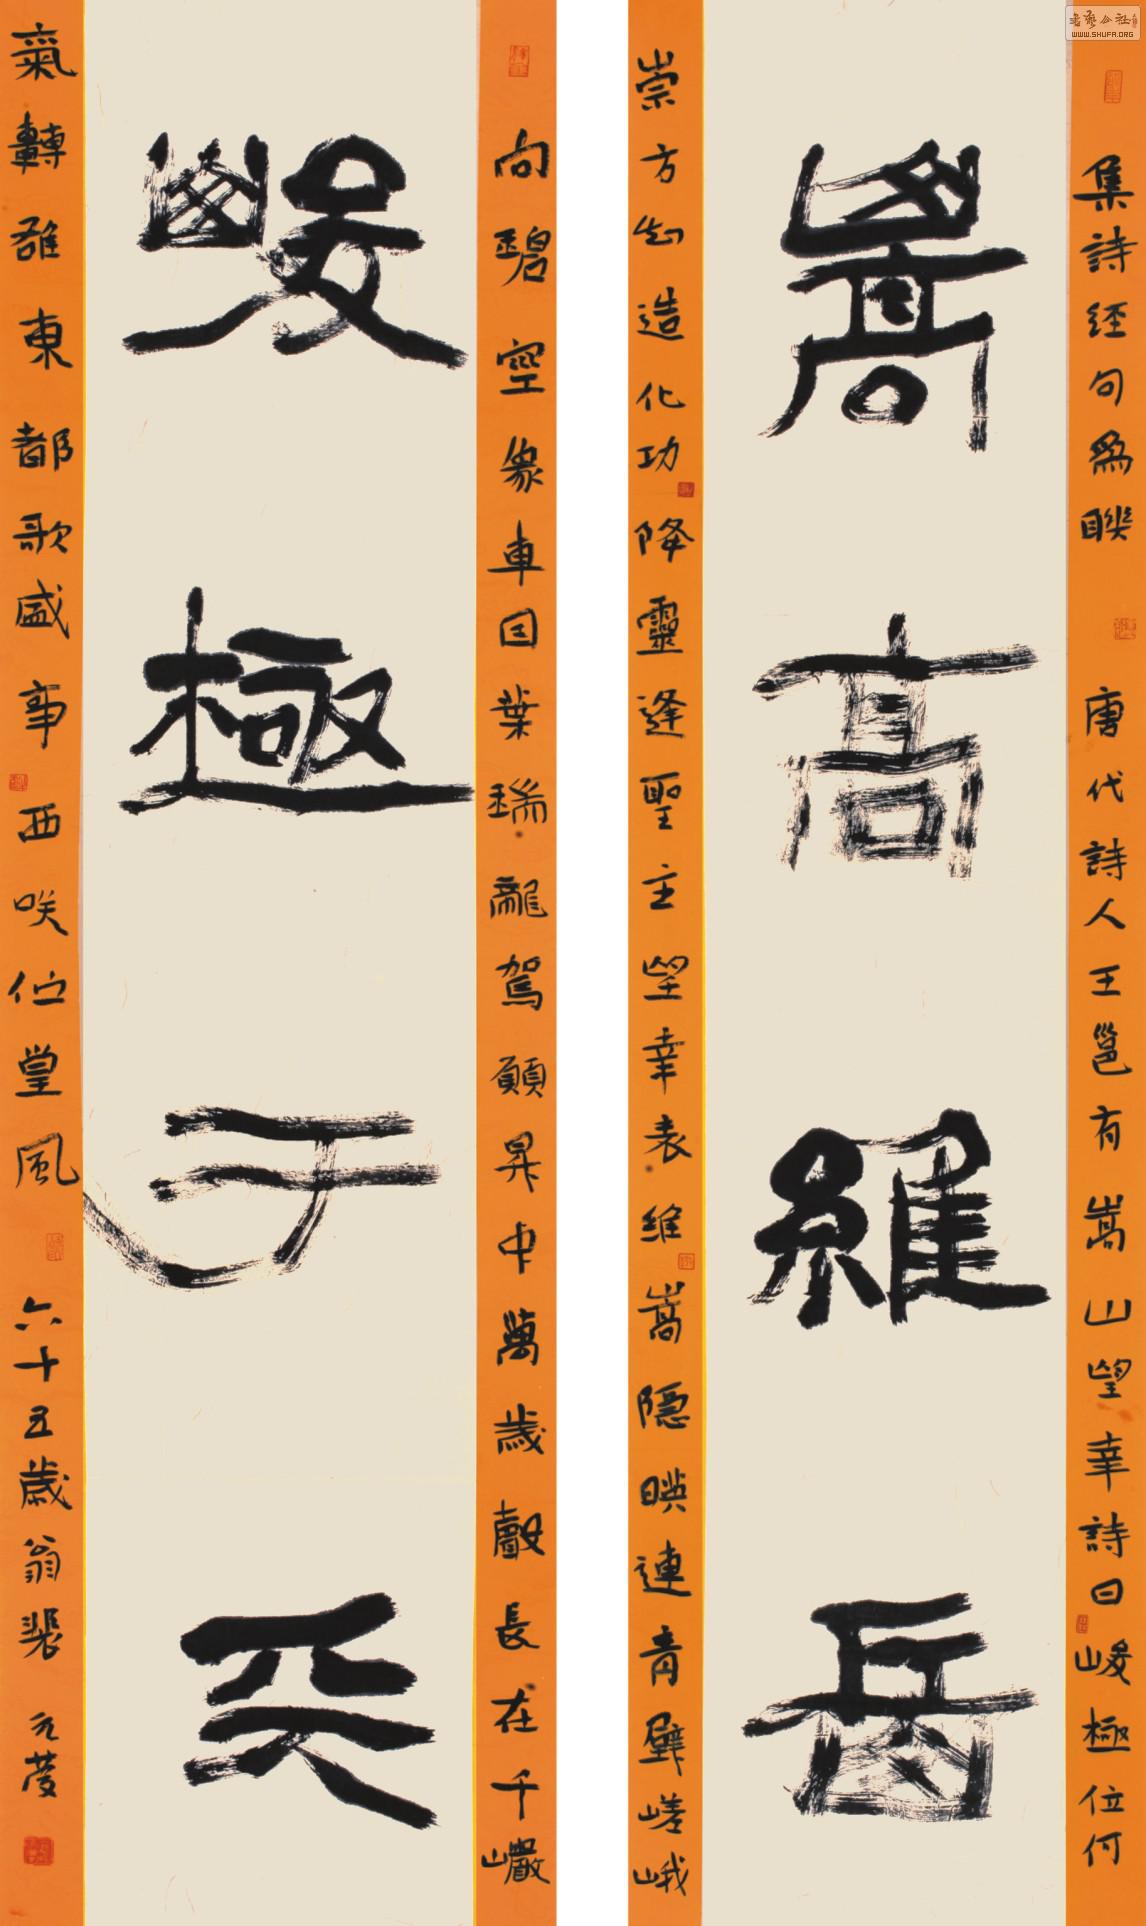 集詩經句為聯 唐代詩人王邕有嵩山望幸詩曰峻極位何
嵩高維岳
崇方知造化功降靈逢聖主望幸表維嵩隱映連青壁嵯峨
向碧空象車因葉瑞龍駕願昇中萬歲聲長在千巖
峻極于天
氣轉雄東都歌盛事西咲佇皇風 六十五歲翁
书艺公社
WWW.SHUFA.ORG